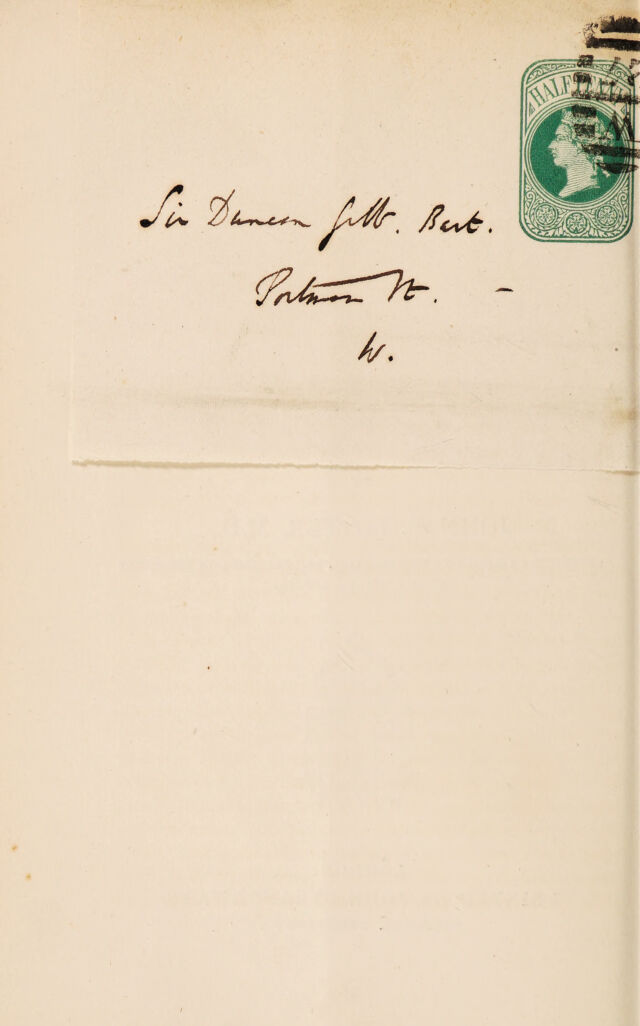 HALF
Sir Duncan Gibb. Bart.
Portman St. -
W.